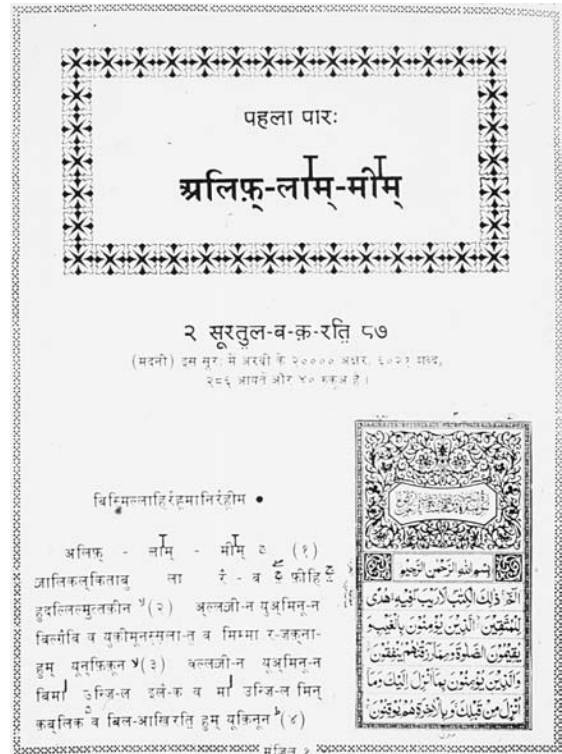 पहला पारः
अलिफ़्-लाम्-मीम्
२ सूरतुल-ब-क़-रति ८७
(मदनी) इस सूरः में अरबी के २०००० अक्षर, ६०२१ शब्द,
२८६ आयतें और ४० रुकूअ हैं।
बिस्मिल्लाहिर्रह्मानिर्रहीम •
अलिफ़् - लाम् - मीम् (१)
जालिकल्किताबु ला रै - ब फ़ीहि
हुदल्लिल्मुत्तकीन (२) अल्लजी-न युअ्मिनू-न
बिल्गैबि व युकीमूनस्सला-त व मिम्मा र-जक्ना-
हुम् यून्फ़िकून (३) वल्लजी-न यूअ्मिनू-न
बिमा उन्जि-ल इलै-क व मा उन्जि-ल मिन्
क़ब्लिक व बिल-आखिरति हुम् यूकिनून (४)
بسم الله الرحمن الرحيم
الٓمّٓ ذٰلِكَ الْكِتٰبُ لَا رَيْبَ فِيْهِ هُدًى
لِّلْمُتَّقِيْنَ الَّذِيْنَ يُؤْمِنُوْنَ بِالْغَيْبِ وَ
يُقِيْمُوْنَ الصَّلٰوةَ وَمِمَّا رَزَقْنٰهُمْ يُنْفِقُوْنَ
وَالَّذِيْنَ يُؤْمِنُوْنَ بِمَآ اُنْزِلَ اِلَيْكَ وَمَآ
اُنْزِلَ مِنْ قَبْلِكَ وَبِالْاٰخِرَةِ هُمْ يُوْقِنُوْنَ
मंजिल १